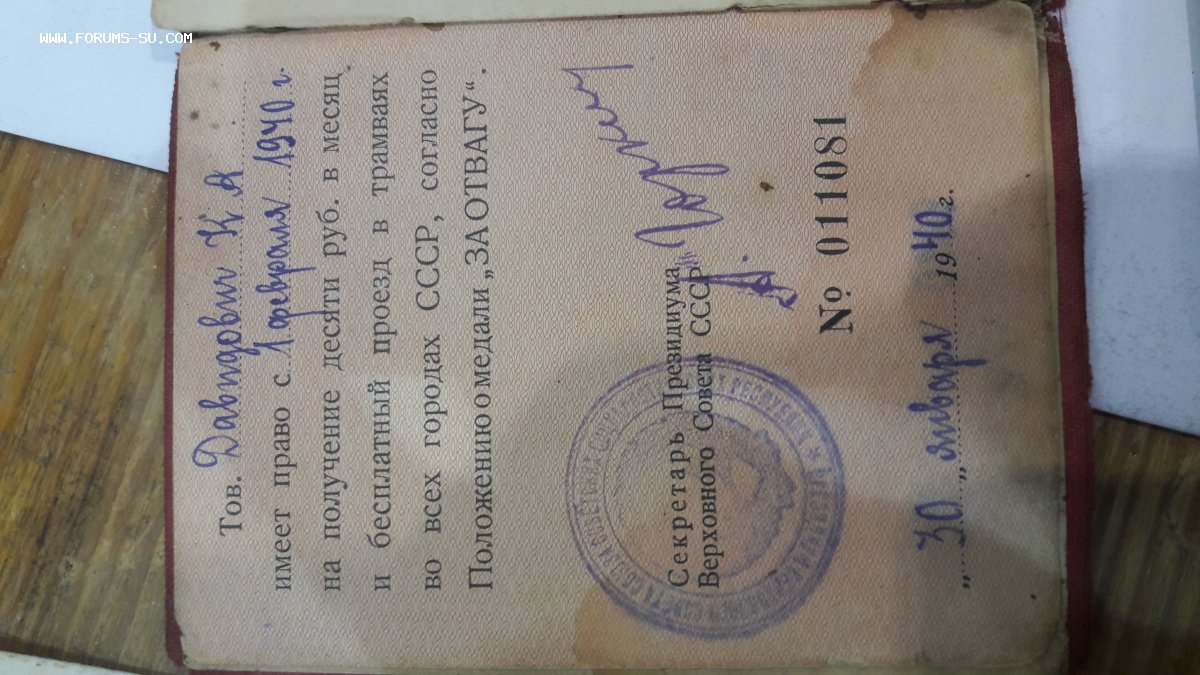 WWW.FORUMS-SU.COM
Тов. Давидович К А
имеет право с 1 февраля 1940 г.
на получение десяти руб. в месяц
и бесплатный проезд в трамваях
во всех городах СССР, согласно
Положению о медали „ЗА ОТВАГУ“.
Секретарь Президиума
Верховного Совета СССР
№ 011081
„30“ января 1940 г.